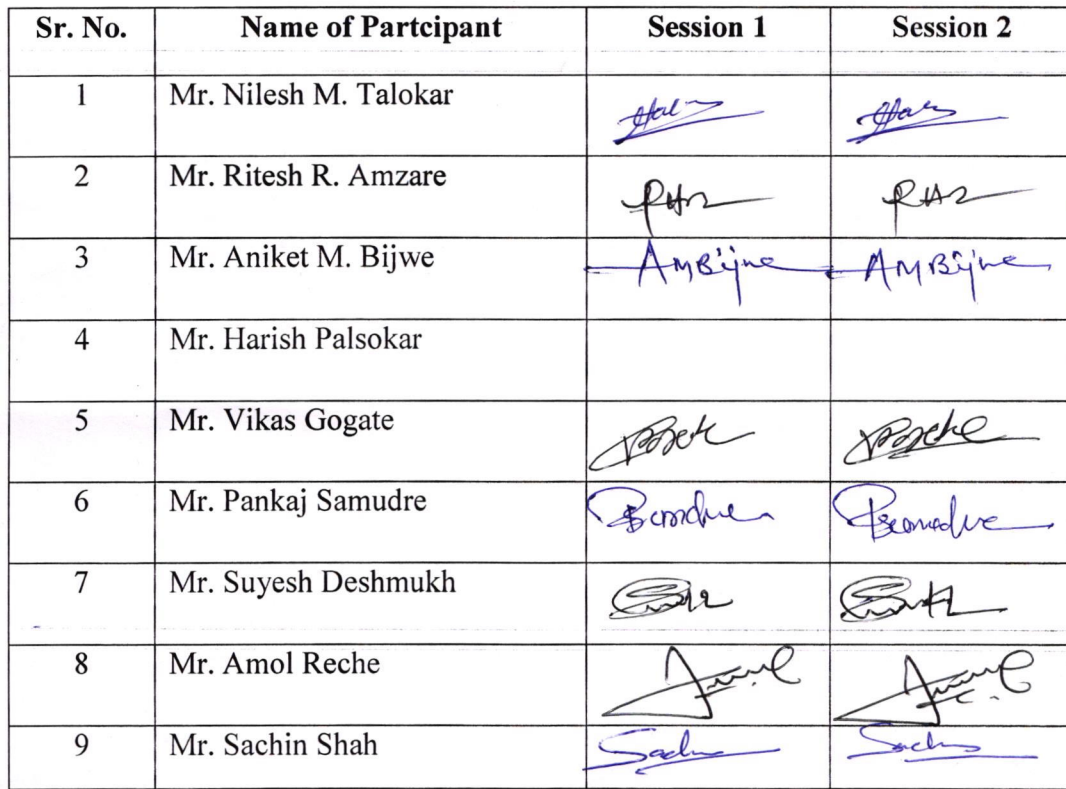 Sr. No. Name of Partcipant Session 1 Session 2
1 Mr. Nilesh M. Talokar
2 Mr. Ritesh R. Amzare
3 Mr. Aniket M. Bijwe AMBijwe AMBijwe
4 Mr. Harish Palsokar
5 Mr. Vikas Gogate
6 Mr. Pankaj Samudre
7 Mr. Suyesh Deshmukh
8 Mr. Amol Reche
9 Mr. Sachin Shah